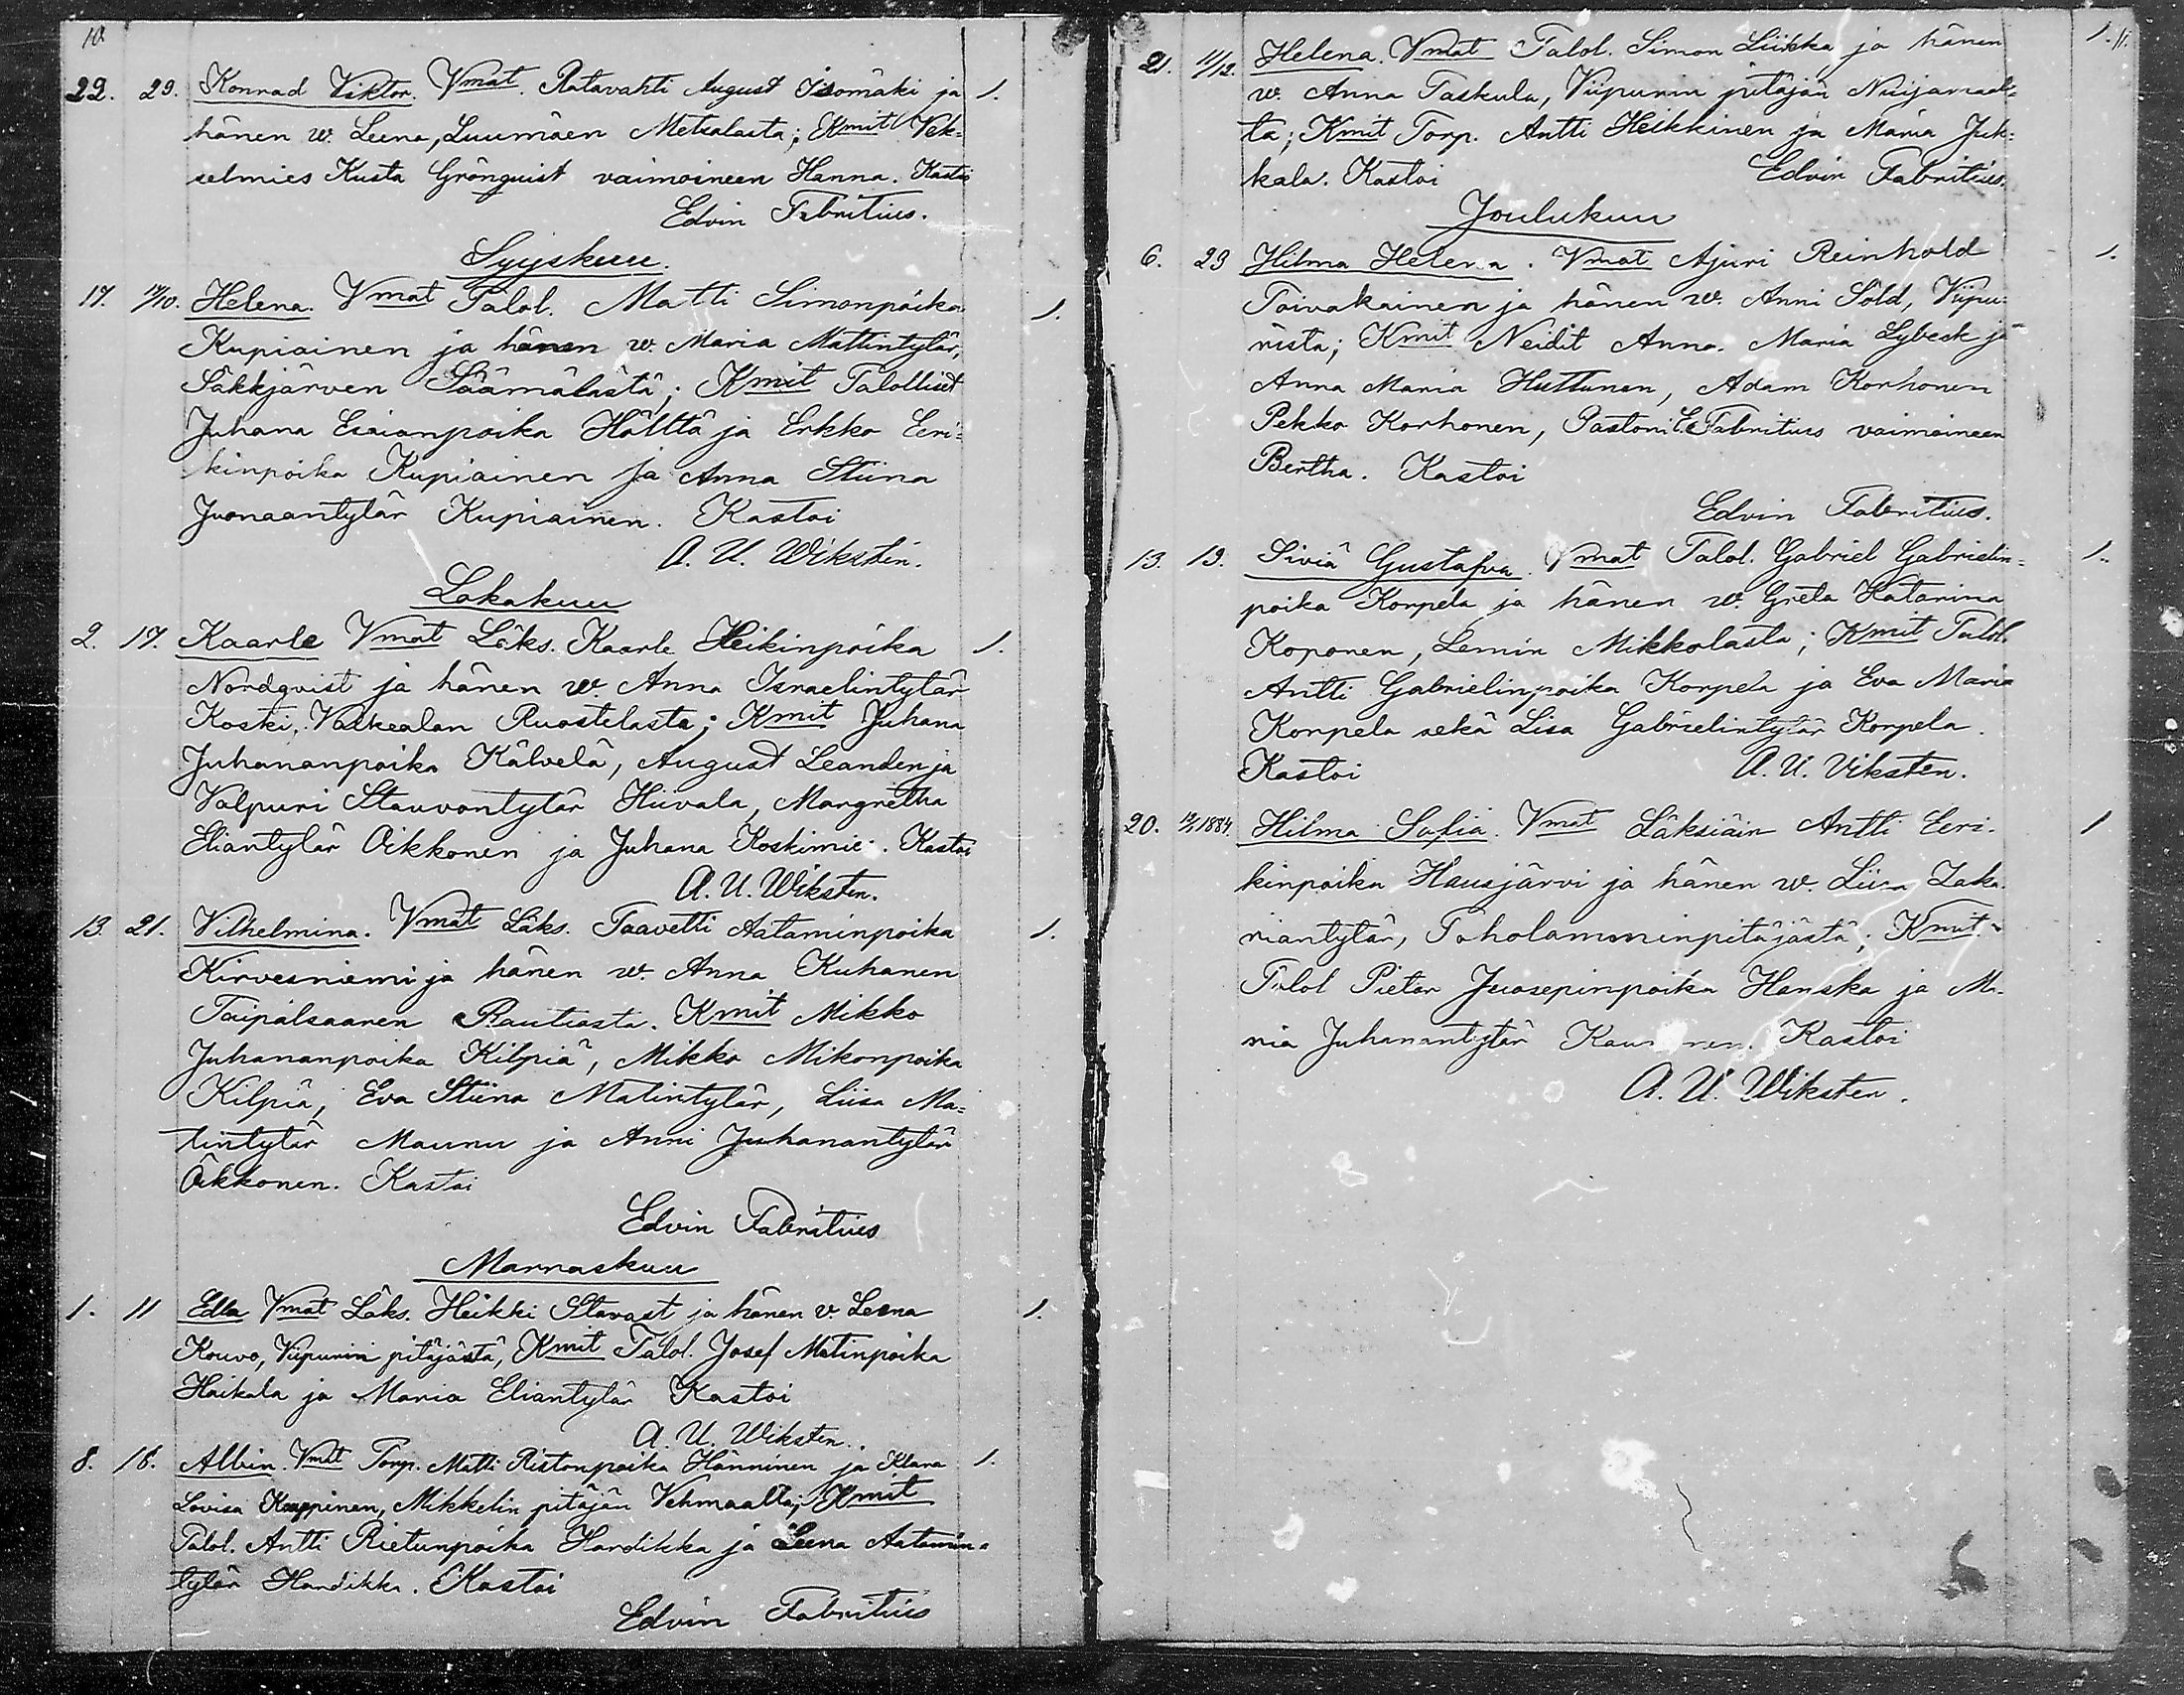 10
22. 29. Konnad Viktor. Vmat. Ratavahti August Isomäki ja 1.
hänen w. Leena, Luumäen Metsalasta; Kmit Vek-
selmies Kusta Grönquist vaimoineen Hanna. Kastoi
Edvin Fabritius.
Syyskuu.
17. Helena. Vmat Talol. Matti Simonpoika 1.
Kupiainen ja hänen w. Maria Mattintytär,
Säkkjärven Säämälästä; Kmit Talolliset
Juhana Esaianpoika Hölttä ja Erkko Eeri-
kinpoika Kupiainen ja Anna Stiina
Juonaantytär Kupiainen. Kastoi
A. U. Wikstén.
Lokakuu
2. 17. Kaarle Vmat Läks. Kaarle Heikinpoika 1.
Nordqvist ja hänen w. Anna Israelintytär
Koski, Valkealan Ruostelasta; Kmit Juhana
Juhananpoika Kälvelä, August Leanden ja
Valpuri Stauvontytär Hiivala, Margretha
Eliantytär Oikkonen ja Juhana Koskimie. Kastoi
A. U. Wiksten.
13. 21. Vilhelmina. Vmat Läks. Taavetti Aataminpoika 1.
Kirvesniemi ja hänen w. Anna Kuhanen
Taipalsaaren Rautiasta. Kmit Mikko
Juhananpoika Kilpiä, Mikko Mikonpoika
Kilpiä, Eva Stiina Matintytär, Liisa Ma-
tintytär Maunu ja Anni Juhanantytär
Oikkonen. Kastoi
Edvin Fabritius
Marraskuu
1. 11 Edla Vmat Läks. Heikki Stavast ja hänen v. Leena 1.
Kouvo, Viipurin pitäjästä, Kmit Talol. Josef Matinpoika
Haikala ja Maria Eliantytär Kastoi
A. U. Wiksten.
8. 18. Albin. Vmat Torp. Matti Ristonpoika Hänninen ja Klara 1.
Lovisa Kauppinen, Mikkelin pitäjän Vehmaalta; Kmit
Talol. Antti Rietunpoika Hardikka ja Leena Aatamin-
tytär Hardikka. Kastoi
Edvin Fabritius
11.
21. 11/12. Helena. Vmat Talol. Simon Liikka ja hänen 1.
w. Anna Taskula, Viipurin pitäjän Nuijamaal-
ta; Kmit Torp. Antti Heikkinen ja Maria Juk-
kala. Kastoi Edvin Fabritius.
Joulukuu
6. 29 Hilma Helena. Vmat Ajuri Reinhold 1.
Toivakainen ja hänen w. Anni Sold, Viipu-
rista; Kmit Neidit Anna Maria Lybeck ja
Anna Maria Huttunen, Adam Korhonen
Pekko Korhonen, Pastori E. Fabritius vaimoineen
Bertha. Kastoi
Edvin Fabritius.
13. 19. Siviä Gustafva. Vmat Talol. Gabriel Gabrielin- 1.
poika Korpela ja hänen w. Greta Katarina
Koponen, Lemin Mikkolasta; Kmit Talol.
Antti Gabrielinpoika Korpela ja Eva Maria
Korpela sekä Lisa Gabrielintytär Korpela.
Kastoi A. U. Viksten.
20. 1884. Hilma Sofia. Vmat Läksiäin Antti Eeri- 1
kinpoika Hausjärvi ja hänen w. Liisa Zaka-
riantytär, Toholamminpitäjästä; Kmit
Talol Pietar Juosepinpoika Hanska ja Ma-
ria Juhanantytär Kastoi
A. U. Wiksten.